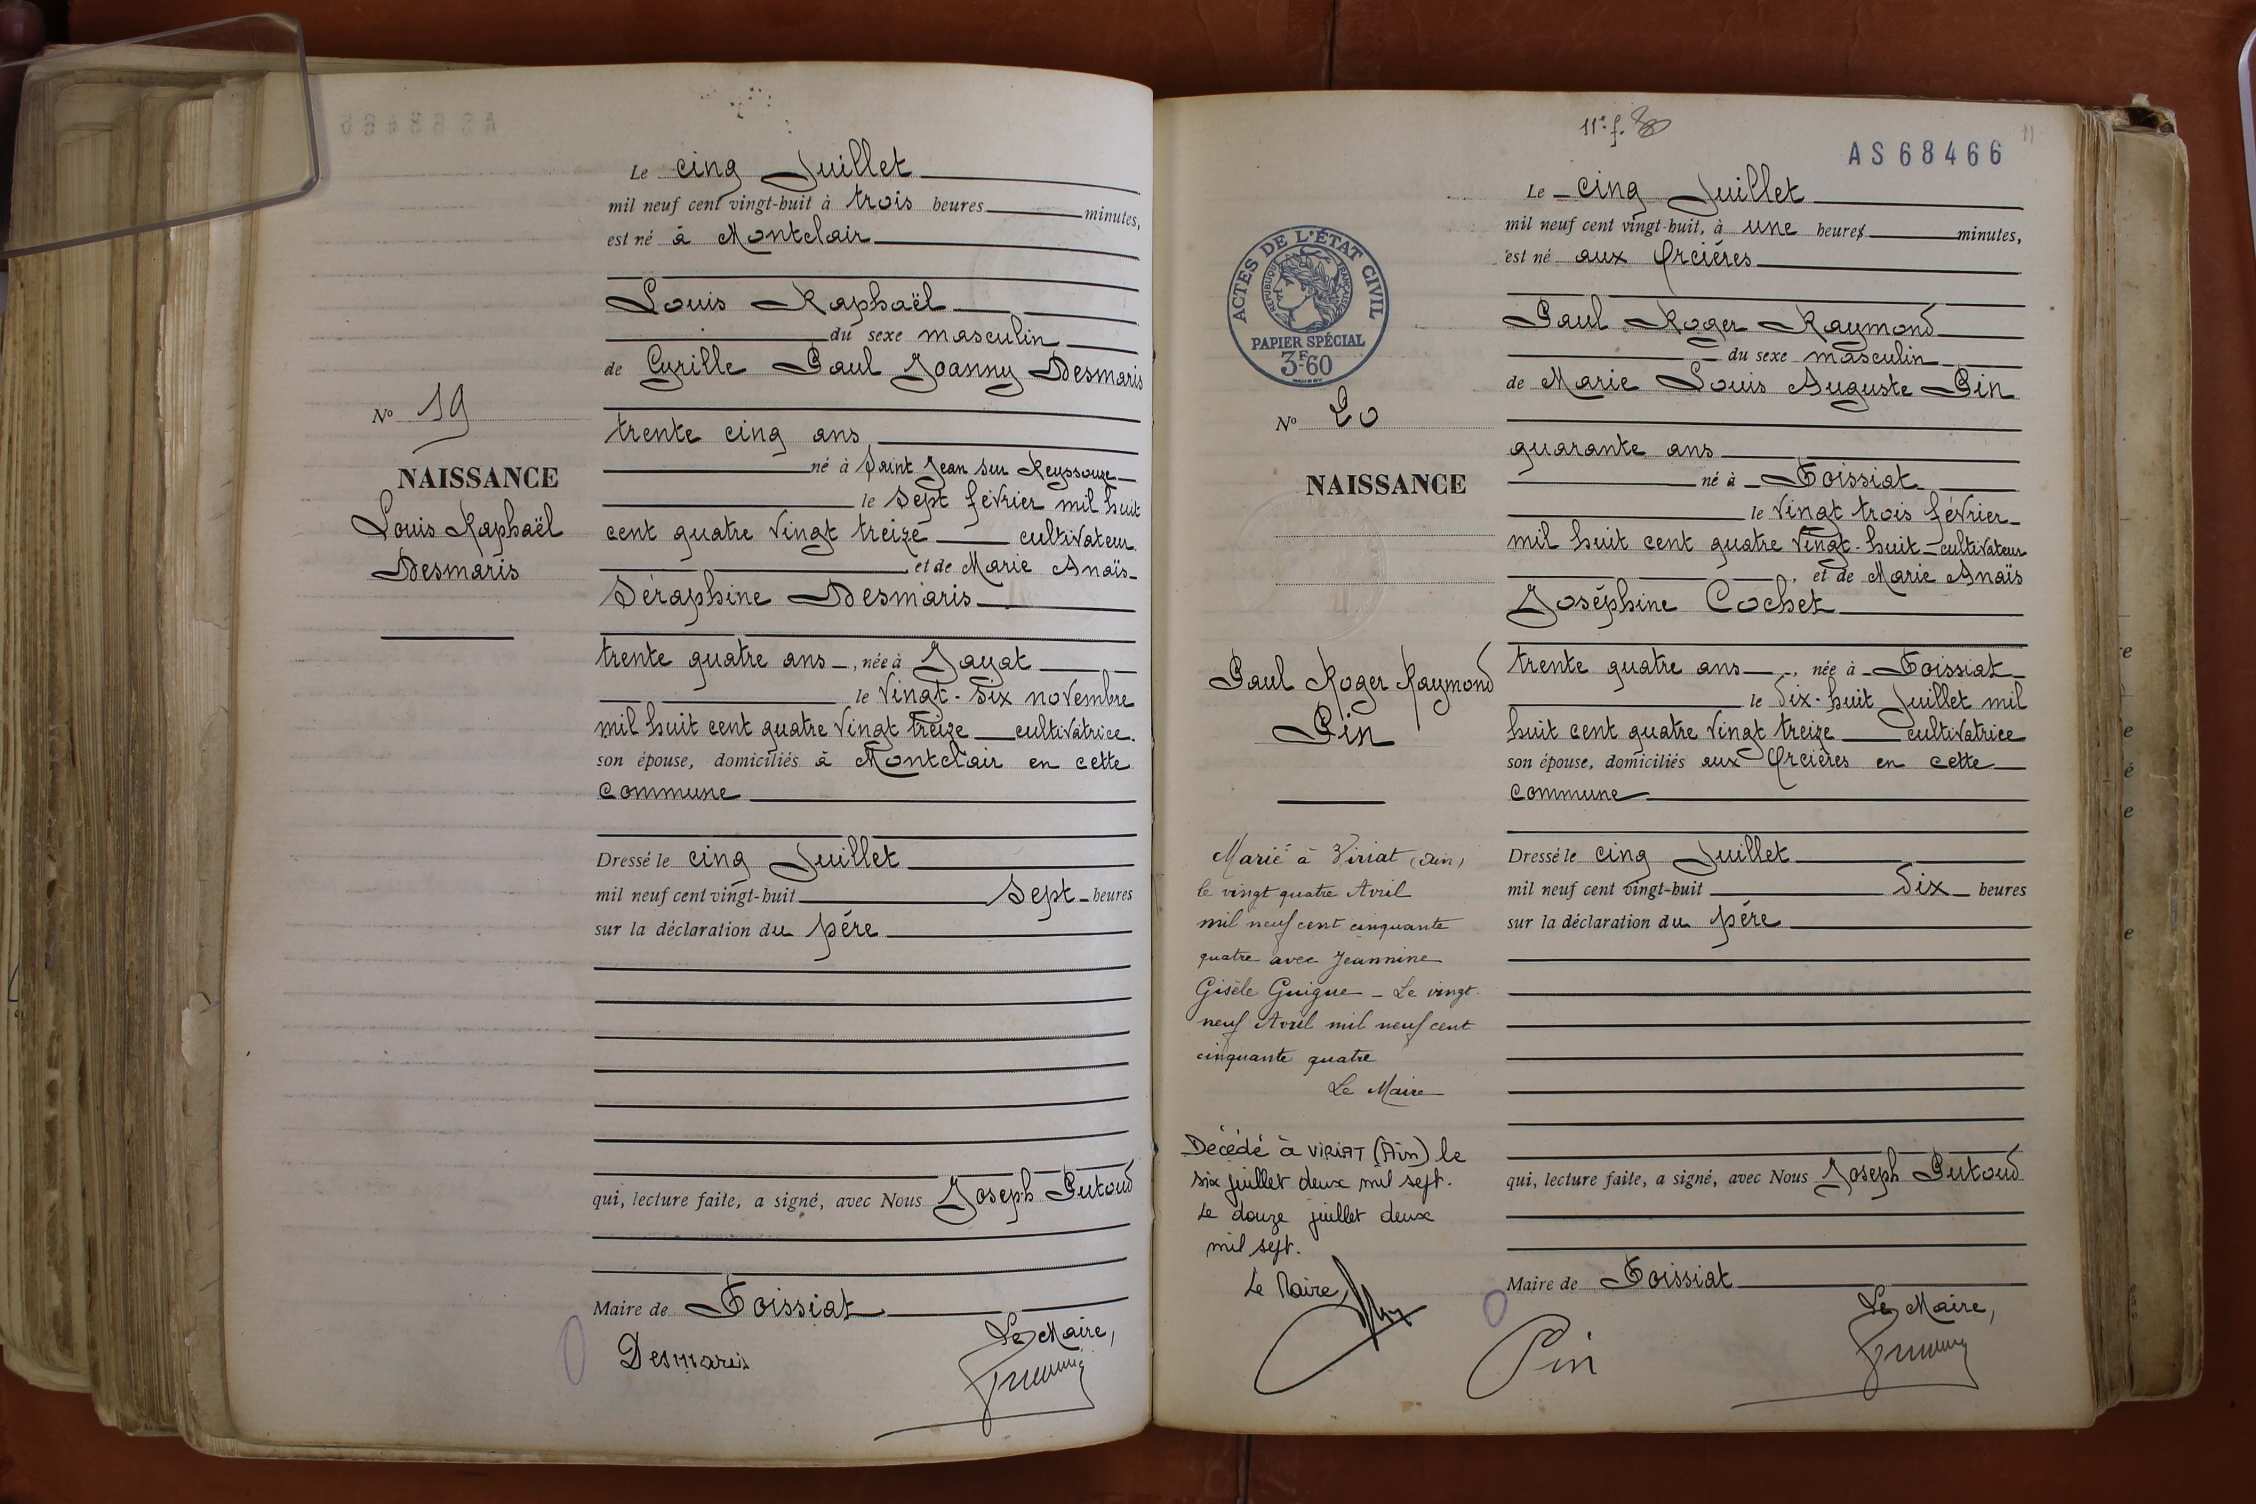 Le cinq Juillet
mil neuf cent vingt-huit à trois heures minutes,
est né à Montclair
Louis Raphaël
du sexe masculin
de Cyrille Paul Joanny Desmaris
trente cinq ans
né à Saint Jean sur Reyssouze
le sept février mil huit
cent quatre vingt treize cultivateur
et de Marie Anaïs
Séraphine Desmaris
trente quatre ans, née à Jayat
le vingt-six novembre
mil huit cent quatre vingt treize cultivatrice.
son épouse, domiciliés à Montclair en cette
commune
Dressé le cinq Juillet
mil neuf cent vingt-huit sept heures
sur la déclaration du père
qui, lecture faite, a signé, avec Nous Joseph Putoud
Maire de Foissiat
Le Maire,
Desmaris
No 19
NAISSANCE
Louis Raphaël
Desmaris
11e f.
AS68466
11
ACTES DE L'ÉTAT CIVIL
RÉPUBLIQUE FRANÇAISE
PAPIER SPÉCIAL
3F60
No 20
NAISSANCE
Paul Roger Raymond
Pin
Marié à Viriat (Ain)
le vingt quatre Avril
mil neuf cent cinquante
quatre avec Jeannine
Gisèle Guigue - Le vingt
neuf Avril mil neuf cent
cinquante quatre
Le Maire
Décédé à VIRIAT (Ain) le
six juillet deux mil sept.
Le douze juillet deux
mil sept.
Le Maire,
Le cinq Juillet
mil neuf cent vingt-huit, à une heures minutes,
est né aux Orcières
Paul Roger Raymond
du sexe masculin
de Marie Louis Auguste Pin
quarante ans
né à Foissiat
le vingt trois février
mil huit cent quatre vingt-huit cultivateur
, et de Marie Anaïs
Joséphine Cochet
trente quatre ans, née à Foissiat
le dix-huit Juillet mil
huit cent quatre vingt treize cultivatrice
son épouse, domiciliés aux Orcières en cette
commune
Dressé le cinq Juillet
mil neuf cent vingt-huit dix heures
sur la déclaration du père
qui, lecture faite, a signé, avec Nous Joseph Putoud
Maire de Foissiat
Le Maire,
Pin